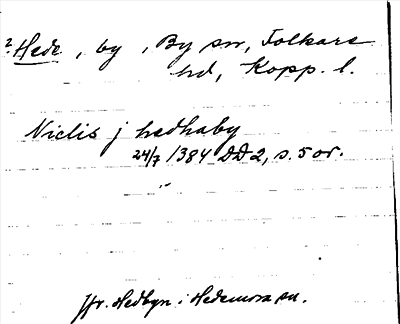 ? Hede, by, By sn, Folkare
hd, Kopp. l.
Niclis j hedhaby
24/7 1384 DD 2, s. 5 or.
Jfr. Hedbyn i Hedemora sn.